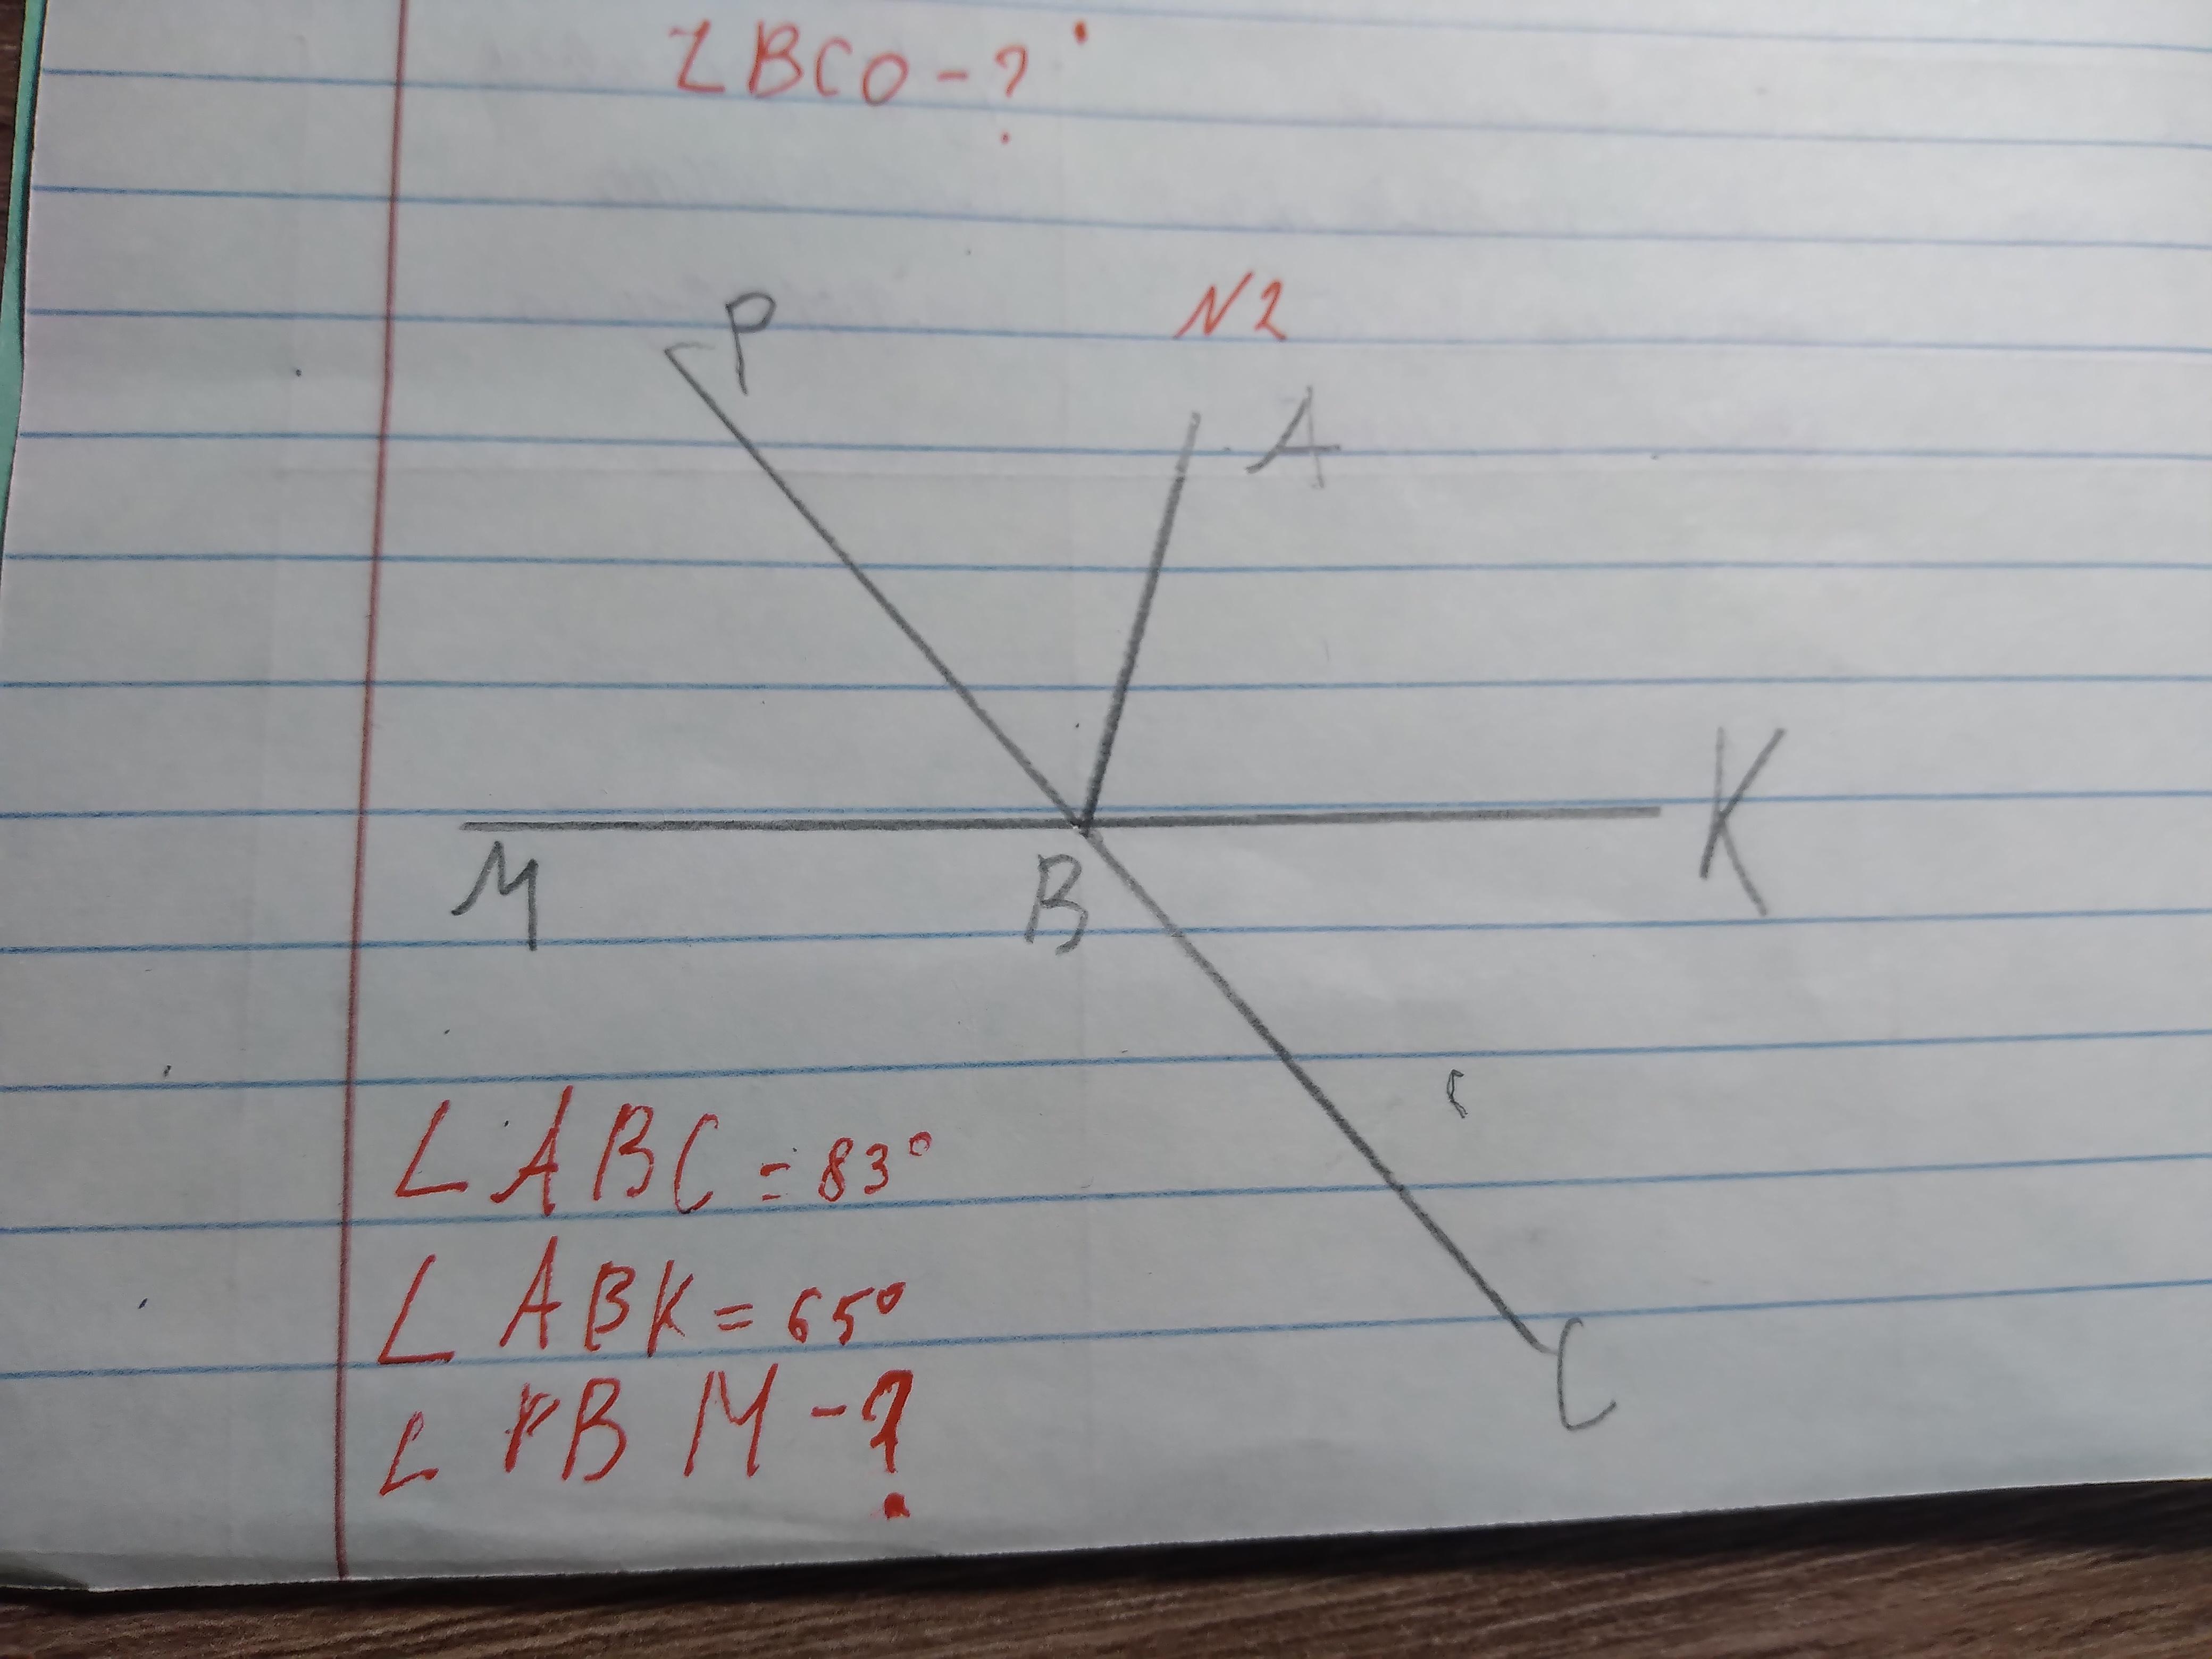 ∠BCO - ?
N2
P
A
K
M
B
C
∠ABC = 83°
∠ABK = 65°
∠PBM - ?